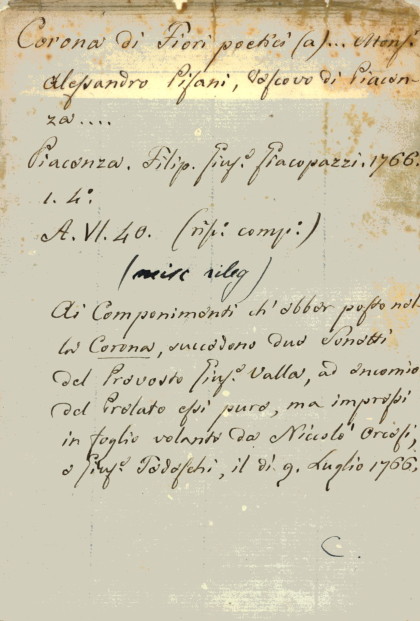 Corona di Fiori poetici (a)... Monsr.
Alessandro Pisani, Vescovo di Piacen-
za....
Piacenza. Filip. Gius.e Giacopazzi. 1766.
1. 4.o
A. VI. 40. (ris.o comp.o)
(misc rileg)
Ai Componimenti ch' ebber posto nel-
la Corona, succedono due Sonetti
del Prevosto Gius.e Valla, ad encomio
del Prelato essi pure, ma impressi
in foglio volante da Niccolò Orcesi,
e Gius.e Tedeschi, il dì 9. Luglio 1766.
C.